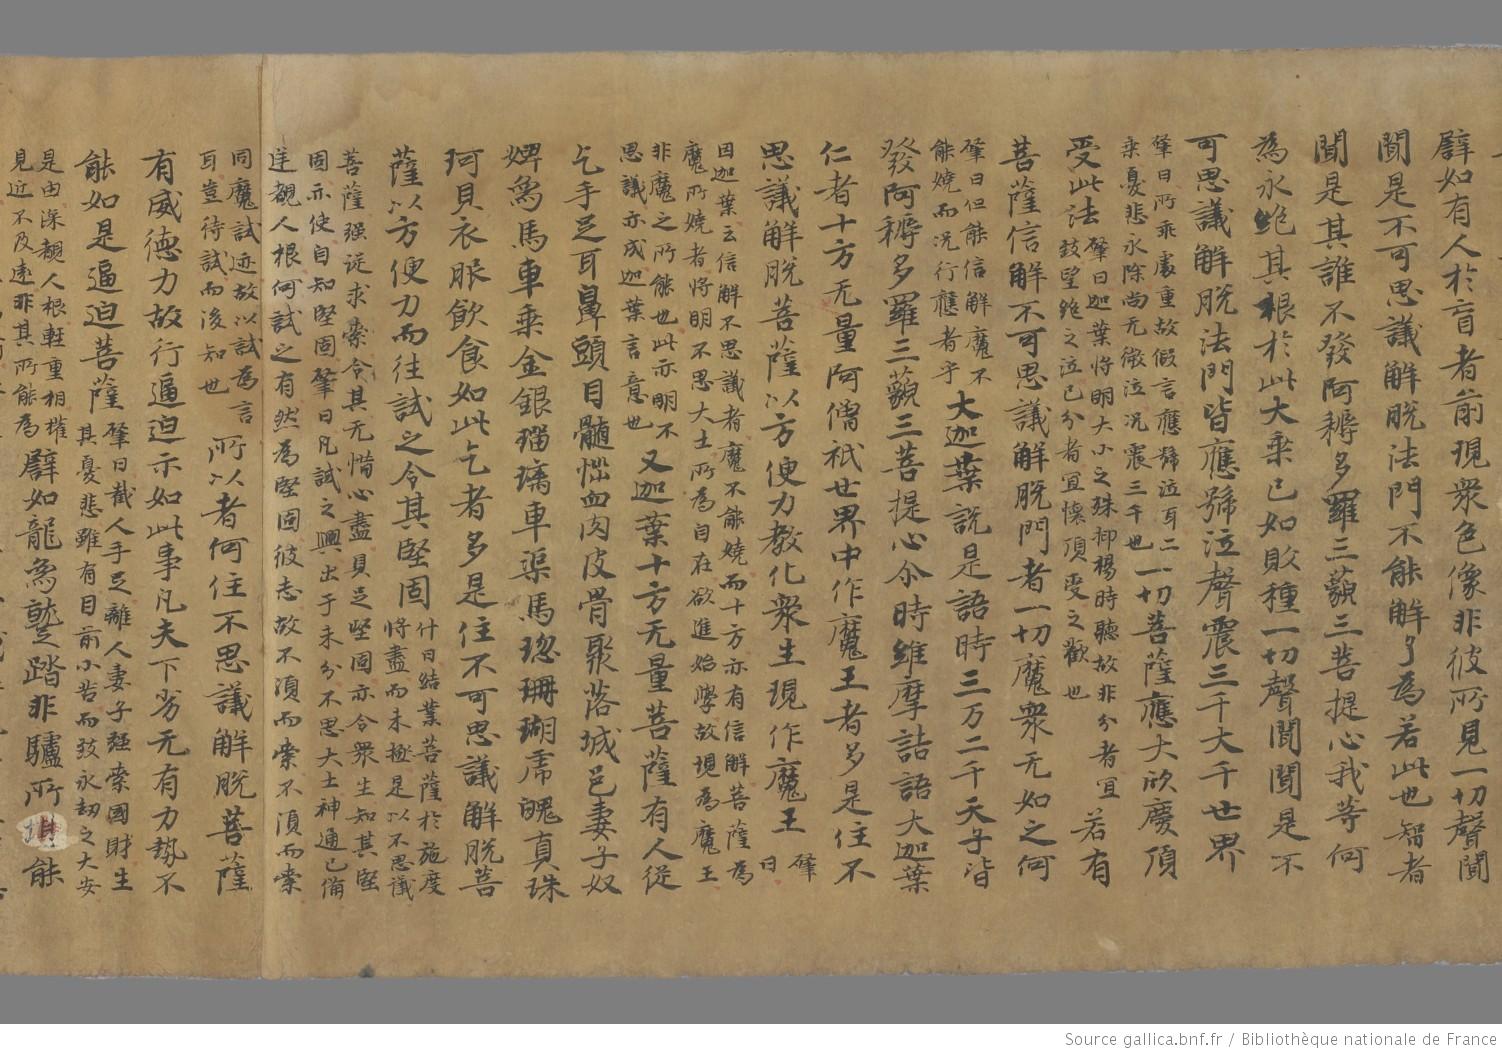 譬如有人於盲者前現衆色像非彼所見一切聲聞
聞是不可思議解脫法門不能解了為若此也智者
聞是其誰不發阿耨多羅三藐三菩提心我等何
為永絕其根於此大乘已如敗種一切聲聞聞是不
可思議解脫法門皆應號泣聲震三千大千世界
肇曰所乘處重故假言應號泣耳二
乘憂悲永除尚无微泣況震三千也
一切菩薩應大欣慶頂
受此法
肇曰迦葉將明大小之殊抑揚時聽故非分者宜
致望絕之泣已分者宜懷頂受之歡也
若有
菩薩信解不可思議解脫門者一切魔衆无如之何
肇曰但能信解魔不
能嬈而況行應者乎
大迦葉說是語時三万二千天子皆
發阿耨多羅三藐三菩提心尒時維摩詰語大迦葉
仁者十方无量阿僧祇世界中作魔王者多是住不
思議解脫菩薩以方便力教化衆生現作魔王
肇
曰
因迦葉云信解不思議者魔不能嬈而十方亦有信解菩薩為
魔所嬈者將明不思大士所為自在欲進始學故現為魔王
非魔之所能也此亦明不
思議亦成迦葉言意也
又迦葉十方无量菩薩有人從
乞手足耳鼻頭目髓惱血肉皮骨聚落城邑妻子奴
婢為馬車乘金銀瑠璃車渠馬瑙珊瑚虎魄真珠
珂貝衣服飲食如此乞者多是住不可思議解脫菩
薩以方便力而往試之令其堅固
什曰結業菩薩於施度
將盡而未極是以不思議
菩薩强從求索令其无惜心盡具足堅固亦令衆生知其堅
固亦使自知堅固肇曰凡試之興出于未分不思大士神通已備
逆覩人根何試之有然為堅固彼志故不須而索不須而索
同魔試迹故以試為言
耳豈待試而後知也
所以者何住不思議解脫菩薩
有威德力故行逼迫示如此事凡夫下劣无有力勢不
能如是逼迫菩薩
肇曰截人手足離人妻子强索國財生
其憂悲雖有目前小苦而致永劫之大安
是由深覩人根輕重相權
見近不及遠非其所能為
譬如龍為蹵踏非驢所堪能